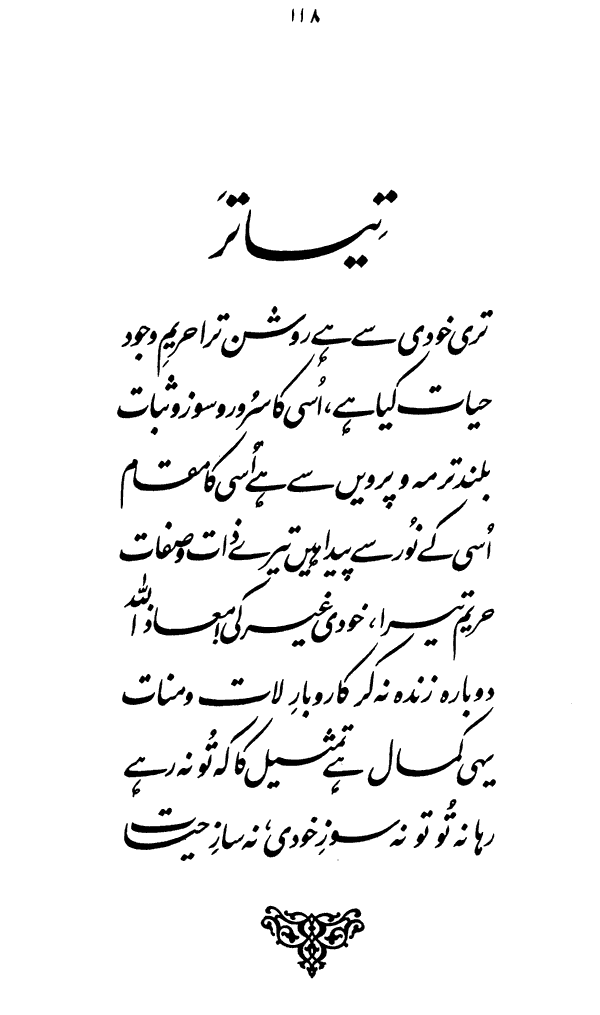 ۱۱۸
تِیاتَر
تری خودی سے ہے روشن ترا حریمِ وجود
حیات کیا ہے، اُسی کا سُرور و سوز و ثبات
بلند تر مہ و پرویں سے ہے اُسی کا مقام
اُسی کے نُور سے پیدا ہیں تیرے ذات و صفات
حریم تیرا، خودی غیر کی! معاذاللہ
دوبارہ زندہ نہ کر کاروبارِ لات و منات
یہی کمال ہے تمثیل کا کہ تُو نہ رہے
رہا نہ تُو تو نہ سوزِ خودی، نہ سازِ حیات